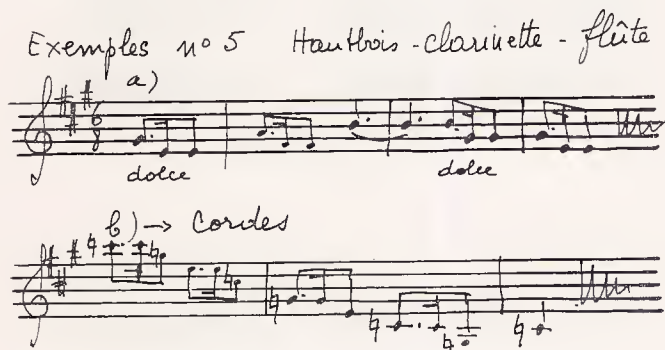 Exemples nº 5 Hautbois - clarinette - flûte
a)
6
8
dolce dolce
b) → Cordes